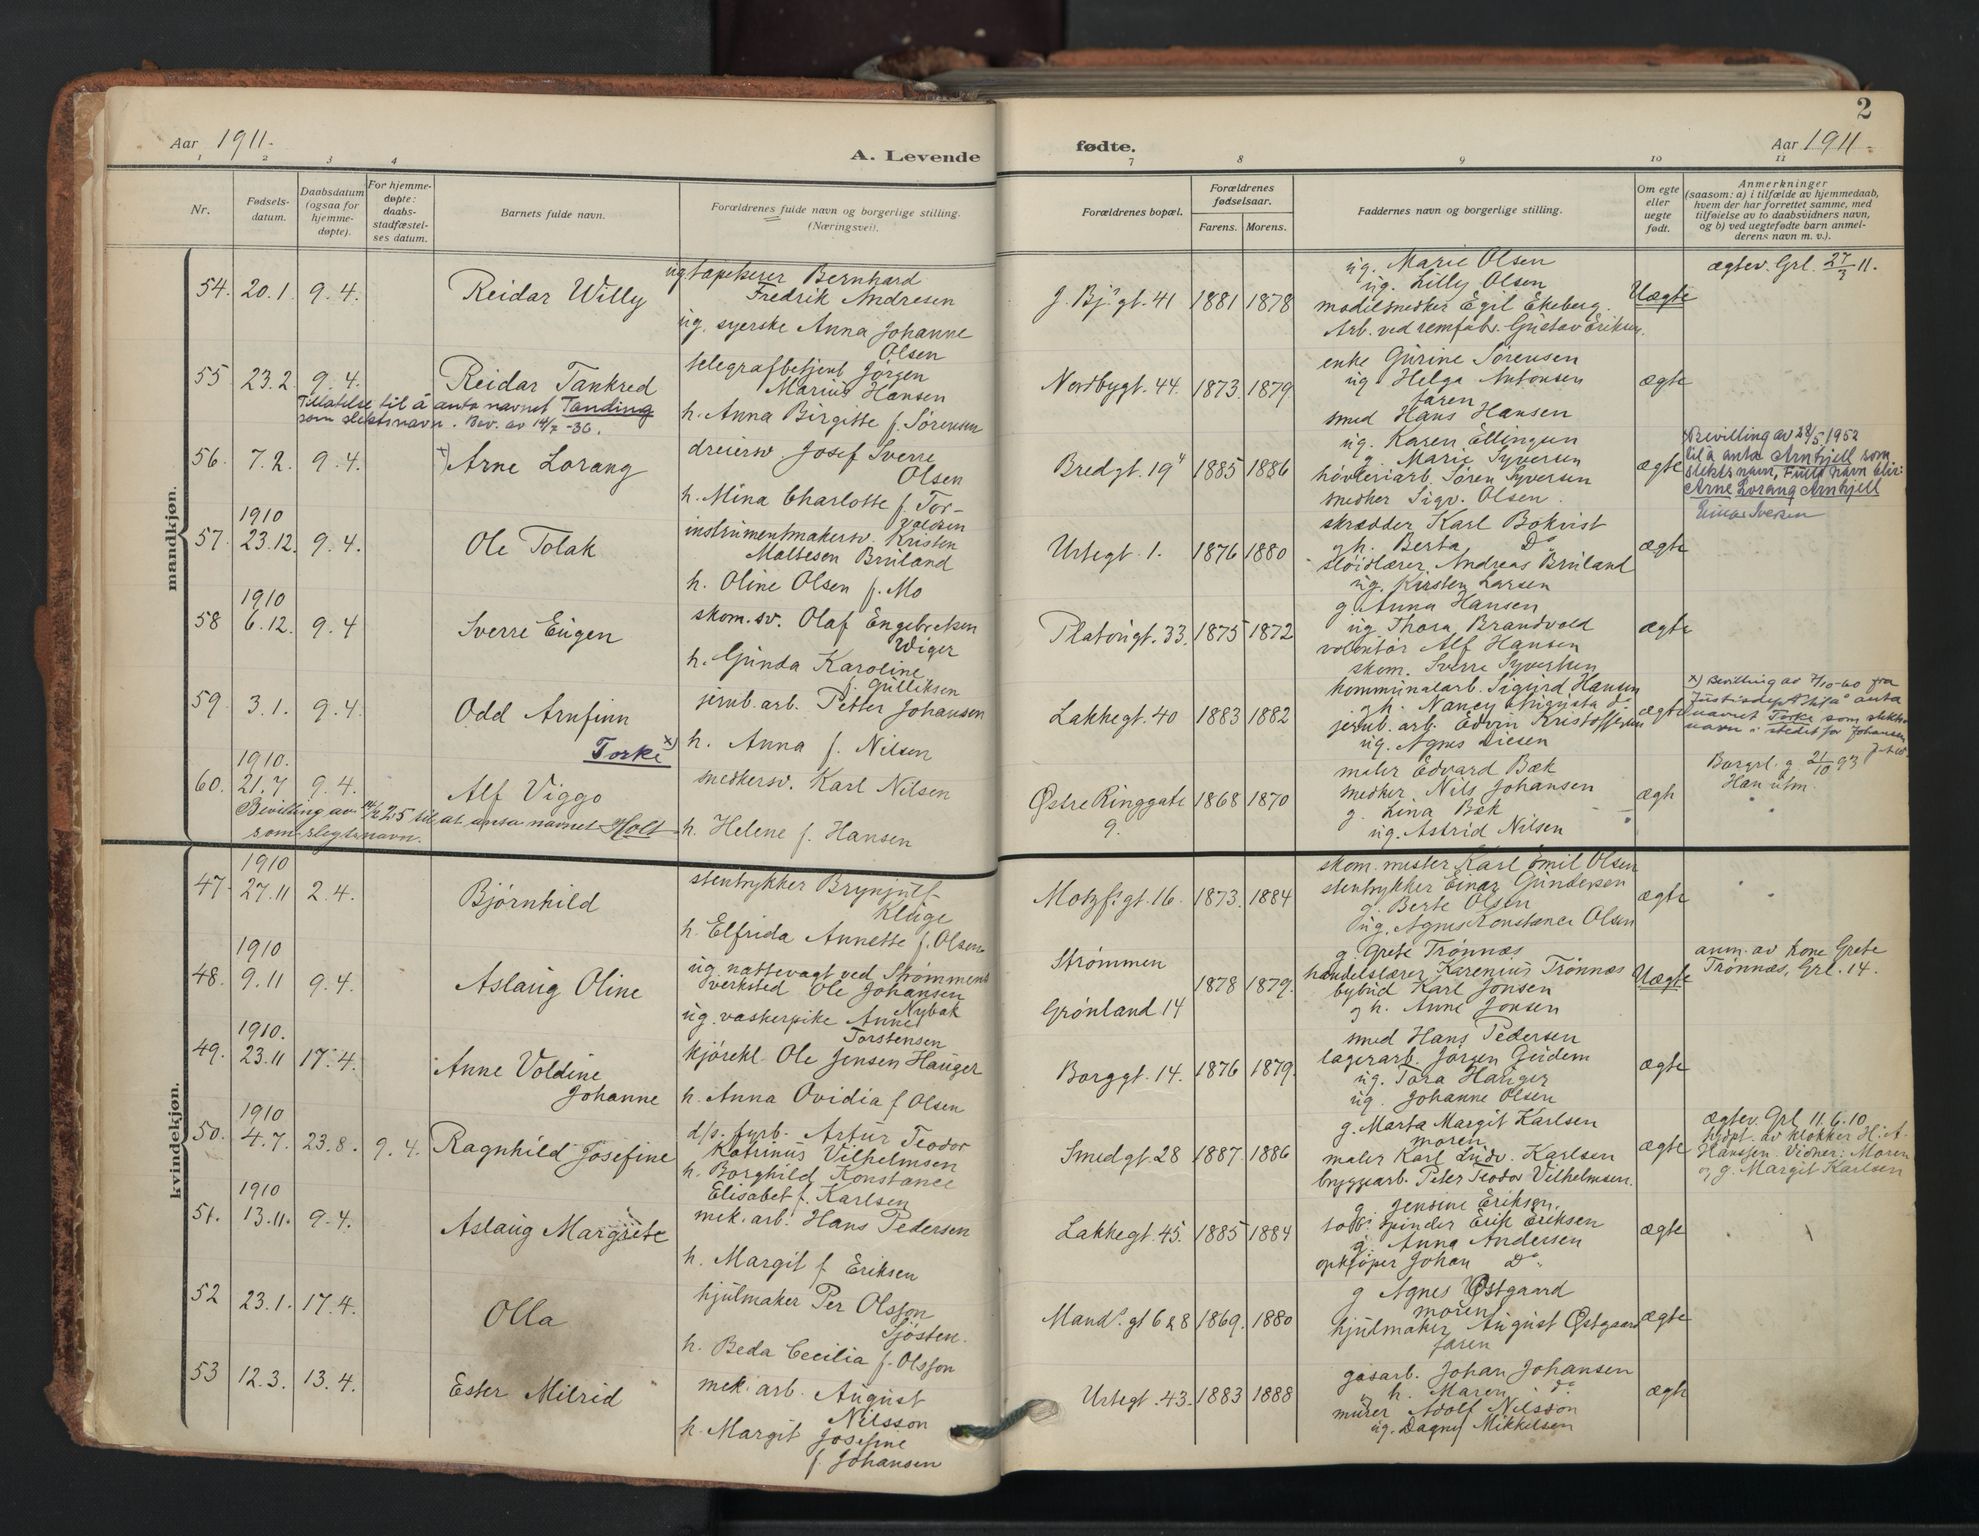 2
Aar 1911.
A. Levende
fødte.
Aar 1911.
1 2 3 4
7 8 9 10 11
Nr.
Fødsels-
datum.
Daabsdatum
(ogsaa for
hjemme-
døpte).
For hjemme-
døpte:
daabs-
stadfæstel-
ses datum.
Barnets fulde navn.
Forældrenes fulde navn og borgerlige stilling.
(Næringsvei).
Forældrenes bopæl.
Forældrenes
fødselsaar.
Farens. Morens.
Faddernes navn og borgerlige stilling.
Om egte
eller
uegte
født.
Anmerkninger
(saasom: a) i tilfælde av hjemmedaab,
hvem der har forrettet samme, med
tilføielse av to daabsvidners navn,
og b) ved uegtefødte barn anmel-
derens navn m. v.).
mandkjøn.
54. 20.1. 9.4. Reidar Willy
ug tapetserer Bernhard
Fredrik Andresen
ug. syerske Anna Johanne
Olsen
J. Bj.s gt. 41 1881 1878
ug. Marie Olsen
ug. Lilly Olsen
modelsnedker Egil Ekeberg
Arb. ved remfabr. Gustav Eriksen.
Uægte
ægtev. Grl. 27/3 11.
55. 23.2. 9.4. Reidar Tankred
Tillatelse til å anta navnet Tanding
som slektsnavn. Bev. av 14/7 -36.
telegrafbetjent Jørgen
Marius Hansen
h. Anna Birgitte f. Sørensen
Nordbygt. 44. 1873. 1879.
enke Gurine Sørensen
ug. Helga Antonsen
faren
smed Hans Hansen
ægte
56. 7.2. 9.4. x) Arne Lorang
dreiersv. Josef Sverre
Olsen
h. Mina Charlotte f. Tor-
valdsen
Bredgt. 19 1885 1886
ug. Karen Ellingsen
g. Marie Syversen
høvleriarb. Søren Syversen
snedker Sigv. Olsen.
ægte
x) Bevilling av 28/5 1952
til å anta Arnkjell som
slektsnavn, Fullt navn blir:
Arne Lorang Arnkjell
57. 1910 23.12. 9.4. Ole Tolak
instrumentmakersv. Kristen
Maltesen Bruland
h. Oline Olsen f. Mo
Urtegt. 1. 1876 1880
skrædder Karl Bokvist
og h. Berta Do
sløidlærer Andreas Bruland
ug. Kirsten Larsen
ægte
58 1910 6.12. 9.4 Sverre Eugen
skom.sv. Olaf Engebretsen
Wiger
h. Gunda Karoline
f. Gulliksen
Platousgt. 33. 1875 1872
g. Anna Hansen
ug Thora Brandvold
volontør Alf Hansen
skom. Sverre Syvertsen
ægte
59. 3.1. 9.4. Odd Arnfinn
Torke x)
jernb. arb. Petter Johansen
h. Anna f. Nilsen
Lakkegt. 40 1883 1882
kommunalarb. Sigurd Hansen
og h. Nancy Augusta
jernb. arb. Edvin Kristoffersen
ug. Agnes Diesen
ægte
x) Bevilling av 7/10-60 fra
Justisdep. til å anta
navnet Torke som slekts-
navn i stedet for Johansen
60. 1910. 21.7 9.4. Alf Viggo
Bevilling av 14/2 25 til at anta navnet Holt
som slegtsnavn.
snedkersv. Karl Nilsen
h. Helene f. Hansen
Østre Ringgate
9.
1868 1870
maler Edvard Bæk
snedker Nils Johansen
g. Lina Bæk
ug. Astrid Nilsen
ægte
Borgrl. g. 21/10 93
Han utm.
kvindekjøn.
47 1910 27.11 2.4. Bjørnhild
stentrykker Brynjulf
Kluge
h. Elfrida Annette f. Olsen
Motzf.s gt. 16. 1873. 1884
skom. mester Karl Emil Olsen
stentrykker Einar Gundersen
g. Berte Olsen
ug. Agnes Konstance Olsen
ægte
48. 1910 9.11 9.4. Aslaug Oline
ug. nattevagt ved Strømmens
verksted Ole Johansen
Nybak
ug. vaskepike Anne
Torstensen
Strømmen
Grønland 14
1878 1879.
g. Grete Trønnæs
handelslærer Karenius Trønnæs
bybud Karl Jonsen
og h. Anne Jonsen
Uægte
anm. av kone Grete
Trønnæs, Grl. 14.
49. 1910. 23.11 17.4. Anne Voldine
Johanne
kjørekl. Ole Jensen Hauger
h. Anna Ovidia f. Olsen
Borggt. 14. 1876 1879.
smed Hans Pedersen
lagerarb. Jørgen Gudem
ug. Tora Hauger
ug. Johanne Olsen
ægte
50. 1910 4.7. 23.8. 9.4. Ragnhild Josefine
d/s. fyrb. Artur Teodor
Katrinus Vilhelmsen
h. Borghild Konstance
Elisabet f. Karlsen
Smedgt. 28 1887. 1886
g. Marta Margit Karlsen
moren
maler Karl Ludv. Karlsen
bryggearb. Peter Teodor Vilhelmsen.
ægte
ægtev. Grl 11.6.10
hjdpt. av klokker H. A.
Hanssen. Vidner: Moren
og g. Margit Karlsen
51. 1910 13.11. 9.4. Aslaug Margrete
mek. arb. Hans Pedersen
h. Margit f. Eriksen
Lakkegt. 45. 1885 1884
g. Jensine Eriksen,
tob. spinder Erik Eriksen
g. Anna Andersen
opkjøper Johan Do.
ægte
52 23.1. 17.4. Olla
hjulmaker Per Olsson
Sjösten.
h. Beda Cecilia f. Olsson
Mand.s gt 6 & 8 1869. 1880
g Agnes Østgaard
moren
hjulmaker August Østgaard
faren
ægte
53 12.3. 13.4. Ester Milrid
mek. arb. August
Nilsson
h. Margit Josefine
f. Johansen
Urtegt. 43. 1883 1888
gasarb. Johan Johansen
og h. Maren do.
murer Adolf Nilsson
ug. Dagny Mikkelsen
ægte